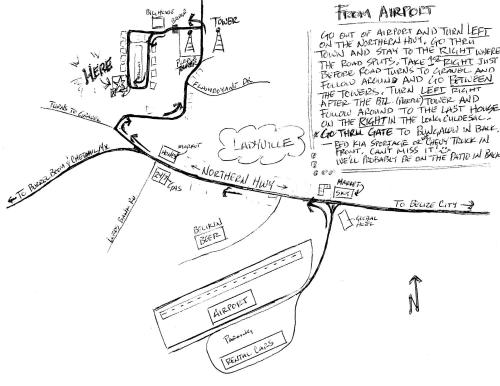 FROM AIRPORT
GO OUT OF AIRPORT AND TURN LEFT
ON THE NORTHERN HWY. GO THRU
TOWN AND STAY TO THE RIGHT WHERE
THE ROAD SPLITS. TAKE 1st RIGHT JUST
BEFORE ROAD TURNS TO GRAVEL AND
FOLLOW AROUND AND GO BETWEEN
THE TOWERS. TURN LEFT RIGHT
AFTER THE BTL TOWER AND
FOLLOW AROUND TO THE LAST HOUSE
ON THE RIGHT IN THE LONG CULDESAC.
GO THRU GATE TO BUNGALOW IN BACK.
RED KIA SPORTAGE OR CHEVY TRUCK IN
FRONT. CAN'T MISS IT!
WE'LL PROBABLY BE ON THE PATIO IN BACK
BIG HOUSE
TOWER
HERE
TURNS TO GRAVEL
LADYVILLE
MARKET
NORTHERN HWY
GAS
MARKET
TO BELIZE CITY
GLOBAL
HOTEL
BELIKIN
BEER
AIRPORT
PARKING
RENTAL CARS
N